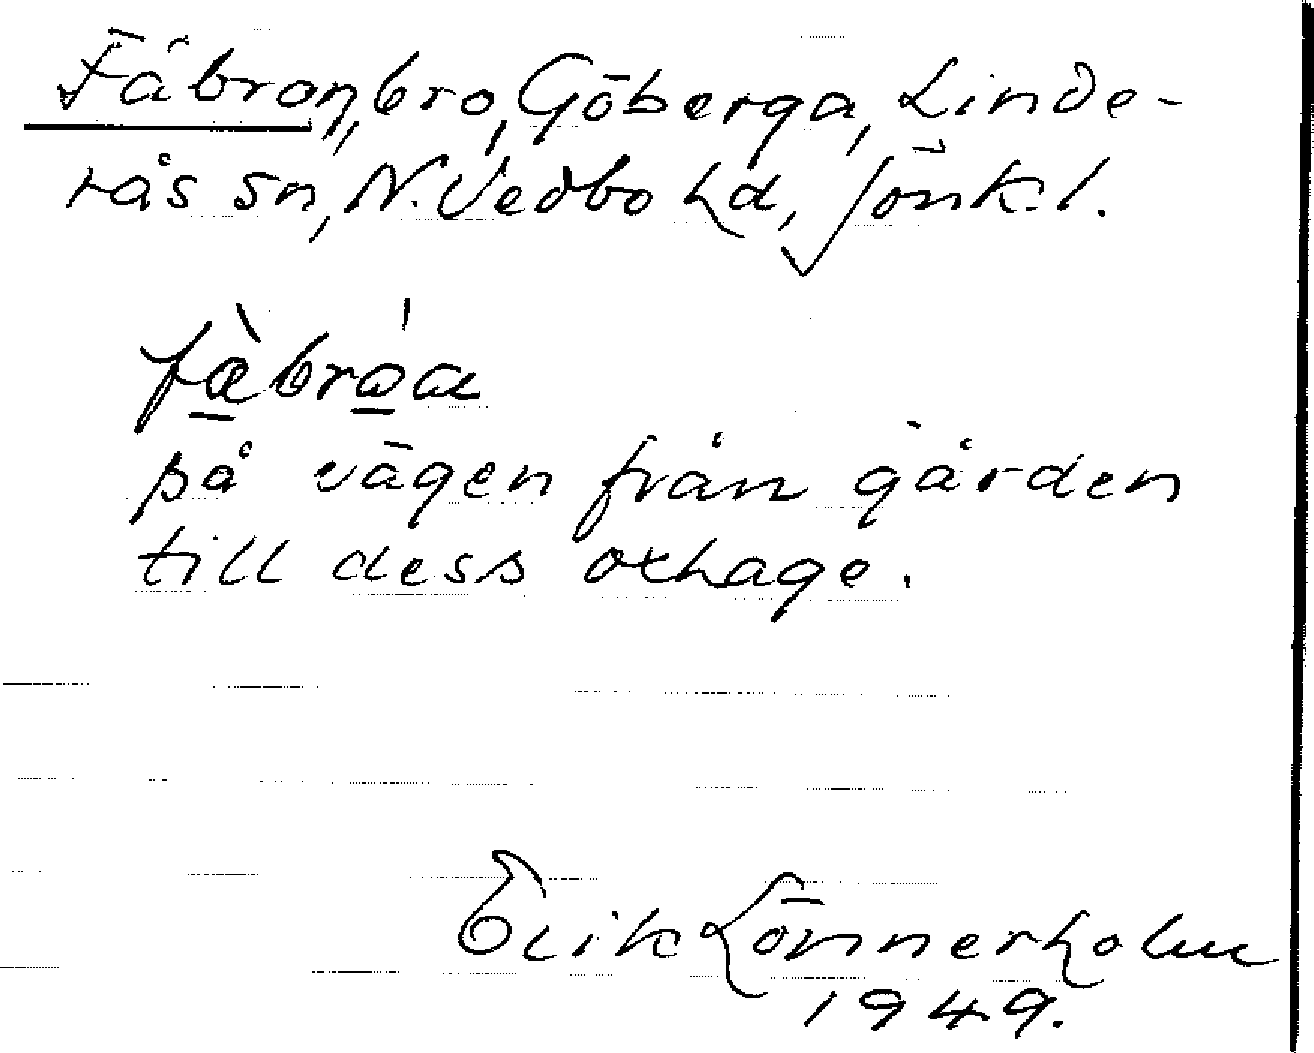 Fäbron, bro, Göberga, Linde-
rås sn, N. Vedbo hd, Jönk. l.
fæ̀bròa
på vägen från gården
till dess oxhage.
Erik Lönnerholm
1949.